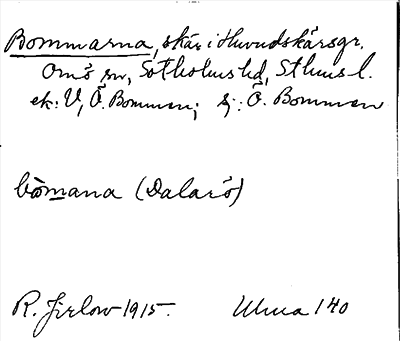 Bommarna, skär i Huvudskärsgr.
Ornö sn, Sotholms hd, Sthms l.
ek: V, Ö. Bomman; sj: Ö. Bomman
bòmana (Dalarö)
R. Jirlow 1915. Uhua 140